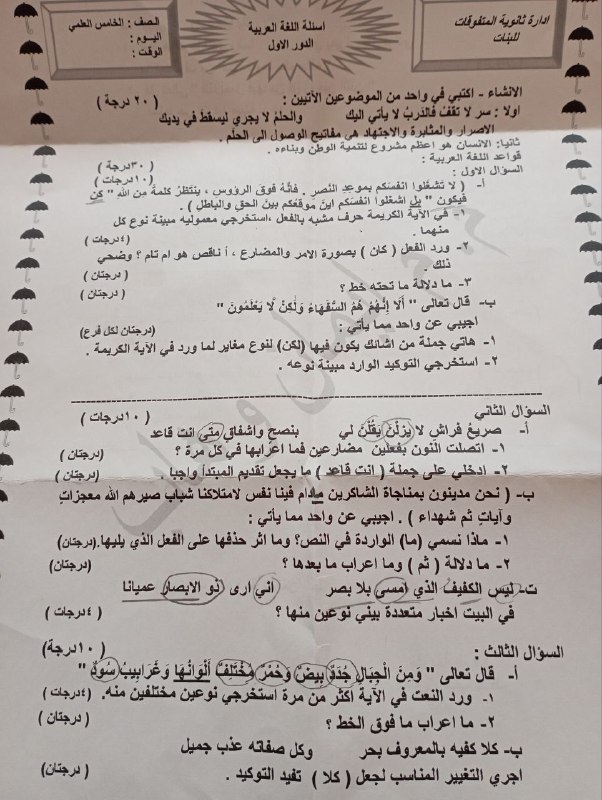 ادارة ثانوية المتفوقات
للبنات
اسئلة اللغة العربية
الدور الاول
الصف : الخامس العلمي
اليوم :
الوقت :
الانشاء - اكتبي في واحد من الموضوعين الآتيين : ( ٢٠ درجة )
اولا : سر لا تقف فالدربُ لا يأتي اليك والحلمُ لا يجري ليسقطَ في يديك
الاصرار والمثابرة والاجتهاد هي مفاتيح الوصول الى الحلم .
ثانيا: الانسان هو اعظم مشروع لتنمية الوطن وبناءه .
قواعد اللغة العربية : ( ٣٠درجة )
السؤال الاول : (١٠درجات )
أ- ( لا تشغلوا انفسَكم بموعدِ النَّصر . فأنَّهُ فوق الرؤوس ، ينتظرُ كلمة من الله " كن
فيكون " بل اشغلوا انفسَكم اينَ موقعُكم بين الحق والباطل ) .
١- في الآية الكريمة حرف مشبه بالفعل ،استخرجي معموليه مبينة نوع كل
منهما . (٤ درجات )
٢- ورد الفعل ( كان ) بصورة الامر والمضارع ، أ ناقص هو ام تام ؟ وضحي
ذلك . ( درجتان )
٣- ما دلالة ما تحته خط ؟ ( درجتان )
ب- قال تعالى " أَلَا إِنَّهُمْ هُمُ السُّفَهَاءُ وَلَكِنْ لَا يَعْلَمُونَ "
اجيبي عن واحد مما يأتي : (درجتان لكل فرع)
١- هاتي جملة من انشائك يكون فيها (لكن) لنوع مغاير لما ورد في الآية الكريمة .
٢- استخرجي التوكيد الوارد مبينة نوعه .
السؤال الثاني ( ١٠ درجات )
أ- صريعُ فراشٍ لا يزلْنَ يَقُلْنَ لي بنصحٍ واشفاقٍ متى انت قاعد
١- اتصلت النون بفعلين مضارعين فما اعرابها في كل مرة ؟ (درجتان)
٢- ادخلي على جملة ( انت قاعد ) ما يجعل تقديم المبتدأ واجبا . (درجتان )
ب- ( نحن مدينون بمناجاة الشاكرين مادام فينا نفس لامتلاكنا شباب صيرهم الله معجزاتٍ
وآياتٍ ثم شهداء ) . اجيبي عن واحد مما يأتي :
١- ماذا نسمي (ما) الواردة في النص؟ وما اثر حذفها على الفعل الذي يليها.(درجتان)
٢- ما دلالة ( ثم ) وما اعراب ما بعدها ؟ (درجتان)
ت- ليس الكفيفُ الذي امسى بلا بصر اني ارى ذو الابصار عميانا
في البيت اخبار متعددة بيني نوعين منها ؟ ( ٤ درجات )
السؤال الثالث : ( ١٠ درجة)
أ- قال تعالى " وَمِنَ الْجِبَالِ جُدَدٌ بِيضٌ وَحُمْرٌ مُخْتَلِفٌ أَلْوَانُهَا وَغَرَابِيبُ سُودٌ "
١- ورد النعت في الآية اكثر من مرة استخرجي نوعين مختلفين منه. (٤درجات )
٢- ما اعراب ما فوق الخط ؟ ( درجتان )
ب- كلا كفيه بالمعروف بحر وكل صفاته عذب جميل
اجري التغيير المناسب لجعل ( كلا ) تفيد التوكيد . ( درجتان)